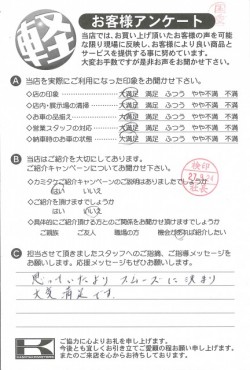 軽
お客様アンケート
当店では、お買い上げ頂いたお客様の声を可能
な限り現場に反映し、お客様により良い商品と
サービスを提供する事に努めています。
大変お手数ですが是非お声をお聞かせ下さい。
A 当店を実際にご利用になった印象をお聞かせ下さい。
◇店の印象 大満足 満足 ふつう やや不満 不満
◇店内・展示場の清掃 大満足 満足 ふつう やや不満 不満
◇お車の品揃え 大満足 満足 ふつう やや不満 不満
◇営業スタッフの対応 大満足 満足 ふつう やや不満 不満
◇納車時のお車の状態 大満足 満足 ふつう やや不満 不満
B 当店はご紹介を大切にしております。
ご紹介キャンペーンについてお聞かせ下さい。
◇カミタケご紹介キャンペーンのご説明はありましたでしょうか
はい いいえ
◇ご紹介を頂けますでしょうか
はい いいえ
◇具体的にご紹介頂ける方とのご関係をお聞かせ願けますでしょうか
ご親族 ご友人 職場の方 機会があれば紹介したい
検印
店長
C 担当させて頂きましたスタッフへのご指摘、ご指導メッセージを
お願いします。応援メッセージもぜひお願いします。
思っていたより スムーズに決まり
大変満足です。
K
ご協力に心よりお礼を申し上げます。
今後とも宜しくお引き立てご愛顧の程お願い申し上げます。
またのご来店を心からお待ちしております。